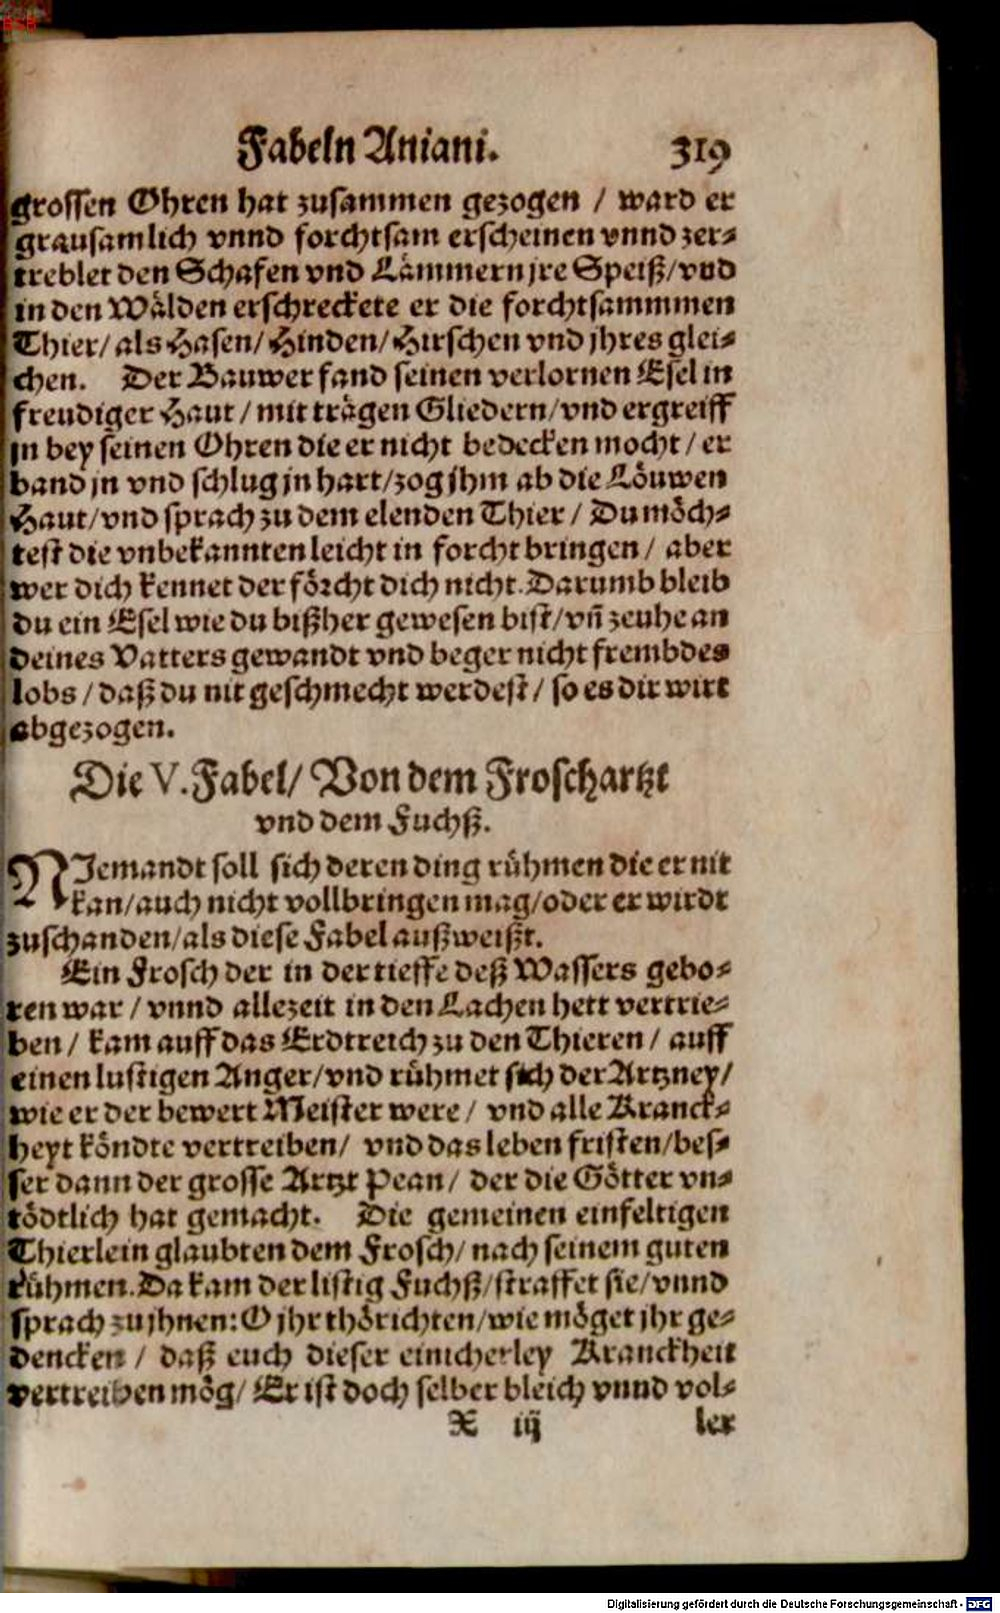 Fabeln Aniani. 319
grossen Ohren hat zusammen gezogen / ward er
grausamlich vnnd forchtsam erscheinen vnnd zer-
treblet den Schafen vnd Lämmern jre Speiß/vnd
in den Wälden erschreckete er die forchtsammmen
Thier/als Hasen/Hinden/Hirschen vnd jhres glei-
chen. Der Bauwer fand seinen verlornen Esel in
freudiger Haut/mit trägen Gliedern/vnd ergreiff
jn bey seinen Ohren die er nicht bedecken mocht/er
band jn vnd schlug jn hart/zog jhm ab die Löuwen
Haut/vnd sprach zu dem elenden Thier / Du möch-
test die vnbekannten leicht in forcht bringen / aber
wer dich kennet der förcht dich nicht. Darumb bleib
du ein Esel wie du bißher gewesen bist/vñ zeuhe an
deines Vatters gewandt vnd beger nicht frembdes
lobs / daß du nit geschmecht werdest / so es dir wirt
abgezogen.
Die V. Fabel/ Von dem Froschartzt
vnd dem Fuchß.
NJemandt soll sich deren ding rühmen die er nit
kan/auch nicht vollbringen mag/oder er wirdt
zuschanden/als diese Fabel außweißt.
Ein Frosch der in der tieffe deß Wassers gebo-
ren war / vnnd allezeit in den Lachen hett vertrie-
ben / kam auff das Erdtreich zu den Thieren / auff
einen lustigen Anger/vnd rühmet sich der Artzney/
wie er der bewert Meister were / vnd alle Kranck-
heyt köndte vertreiben/ vnd das leben fristen/bes-
ser dann der grosse Artzt Pean / der die Götter vn-
tödtlich hat gemacht. Die gemeinen einfeltigen
Thierlein glaubten dem Frosch/nach seinem guten
rühmen. Da kam der listig Fuchß/straffet sie/vnnd
sprach zu jhnen: O jhr thörichten/wie möget jhr ge-
dencken / daß euch dieser einicherley Kranckheit
vertreiben mög/ Er ist doch selber bleich vnnd vol-
X iij ler
Digitalisierung gefördert durch die Deutsche Forschungsgemeinschaft - DFG